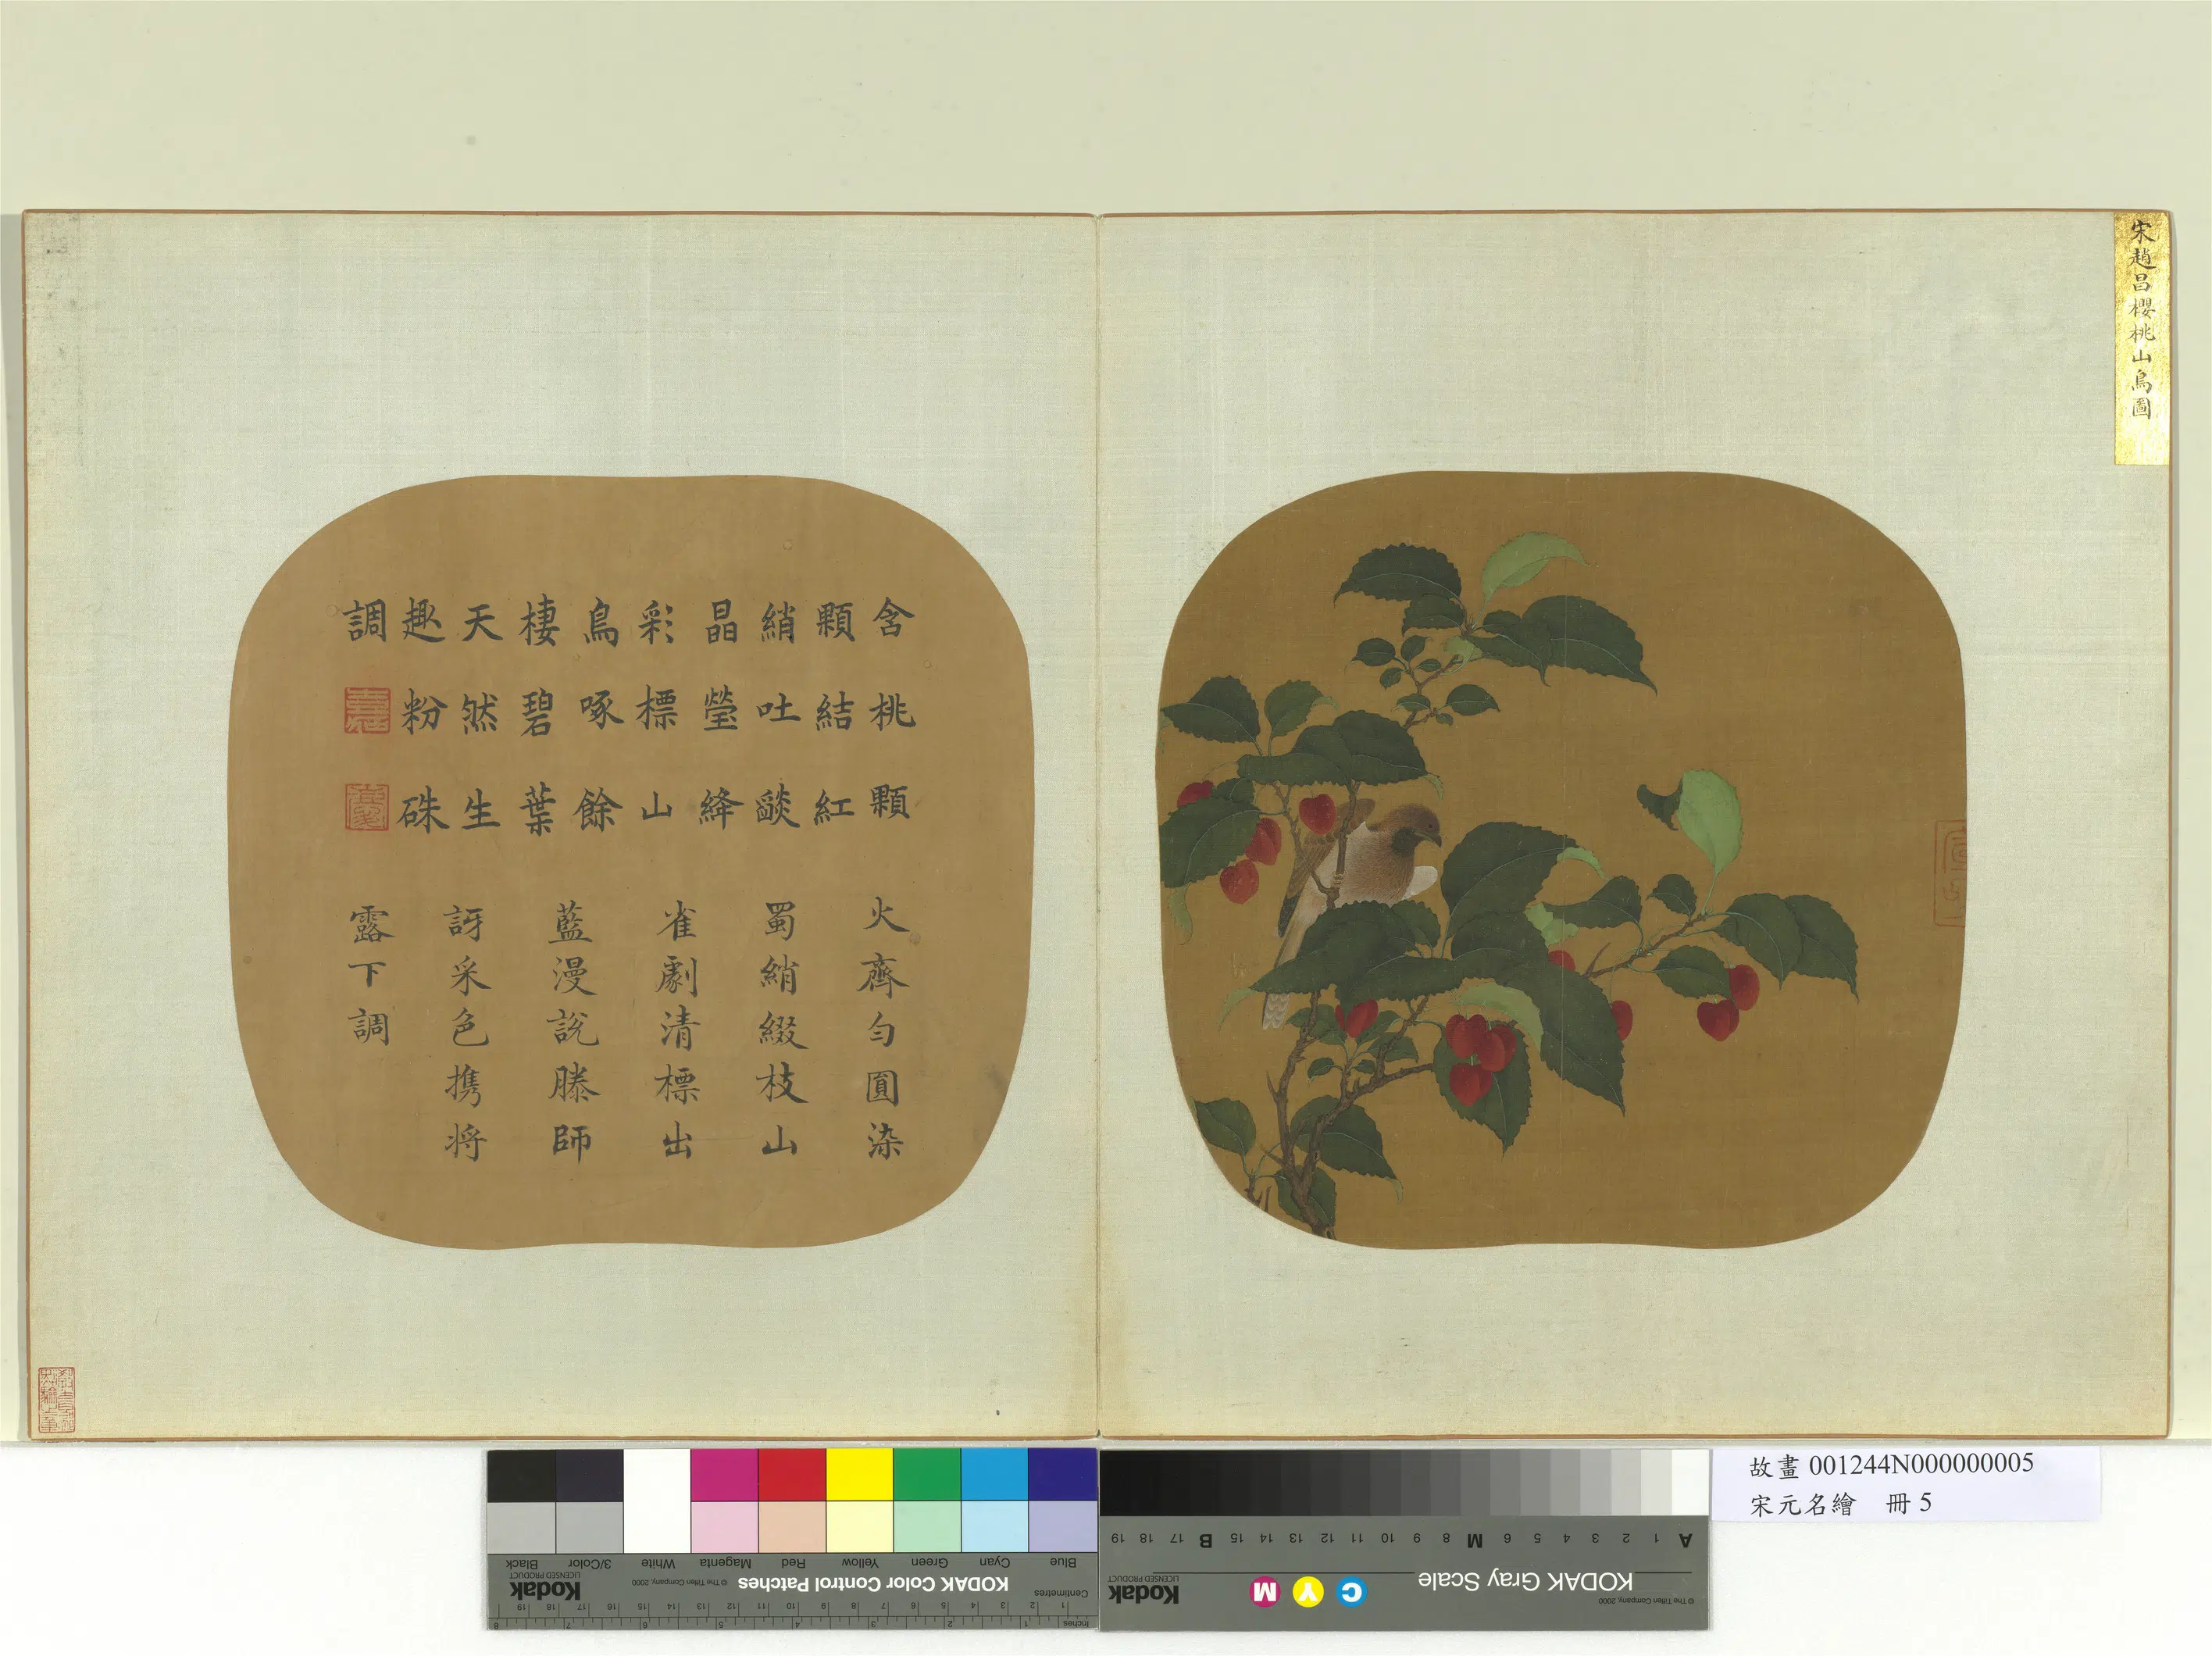 宋趙昌櫻桃山鳥圖
含桃顆
顆結紅
綃吐燄
晶瑩絳
彩標山
鳥啄餘
棲碧葉
天然生
趣粉硃
調
火齊勻圓染
蜀綃綴枝山
雀劇清標出
藍漫說滕師
訝采色携將
露下調
故畫 001244N000000005
宋元名繪 冊 5
KODAK Color Control Patches
© The Tiffen Company, 2000
Kodak
LICENSED PRODUCT
Inches
Centimetres
Blue Cyan Green Yellow Red Magenta White 3/Color Black
KODAK Gray Scale
C Y M
Kodak
LICENSED PRODUCT
© The Tiffen Company, 2000
A 1 2 3 4 5 6 M 8 9 10 11 12 13 14 15 B 17 18 19